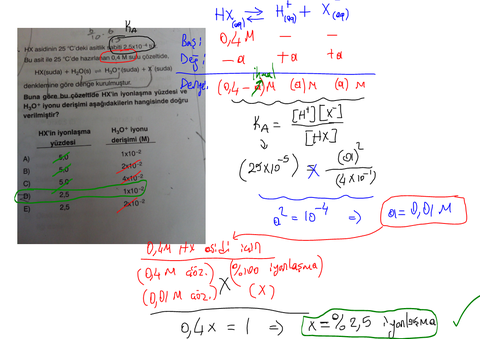 HX(aq) ⇌ H⁺(aq) + X⁻(aq)
KA
HX asidinin 25 °C'deki asitlik sabiti 2,5x10⁻⁴ tür.
Bu asit ile 25 °C'de hazırlanan 0,4 M su çözeltide,
HX(suda) + H₂O(s) ⇌ H₃O⁺(suda) + X⁻(suda)
denklemine göre denge kurulmuştur.
Buna göre bu çözeltide HX'in iyonlaşma yüzdesi ve
H₃O⁺ iyonu derişimi aşağıdakilerin hangisinde doğru
verilmiştir?
HX'in iyonlaşma yüzdesi H₃O⁺ iyonu derişimi (M)
A) 5,0 1x10⁻²
B) 5,0 2x10⁻²
C) 5,0 4x10⁻²
D) 2,5 1x10⁻²
E) 2,5 2x10⁻²
Baş: 0,4M - -
Değ: -a +a +a
ihmal
Denge: (0,4-a)M (a)M (a)M
KA = [H⁺][X⁻] / [HX]
(25x10⁻⁵) = (a)² / (4x10⁻¹)
a² = 10⁻⁴ ⇒ a=0,01M
0,4M HX asidi için
(0,4M çöz.) (%100 iyonlaşma)
(0,01M çöz.) X (x)
0,4x = 1 ⇒ x=%2,5 iyonlaşma